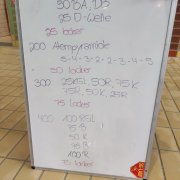 50 BA, DS
25 D-Welle
25 locker
200 Atempyramide
5-4-3-2-2-3-4-5
50 locker
300 25KGL, 50R, 75K
75R, 50K, 25R
75 locker
400 100 RGL
75 B
50 K
75 R
100 R
75 locker